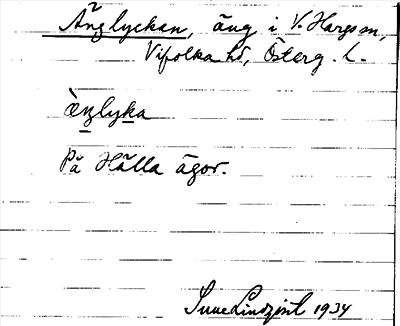 Änglyckan, äng i V. Hargs sn,
Vifolka hd, Österg. l.
ὲn̠lyk̠a
På Hålla ägor.
Sune Lindqvist 1934